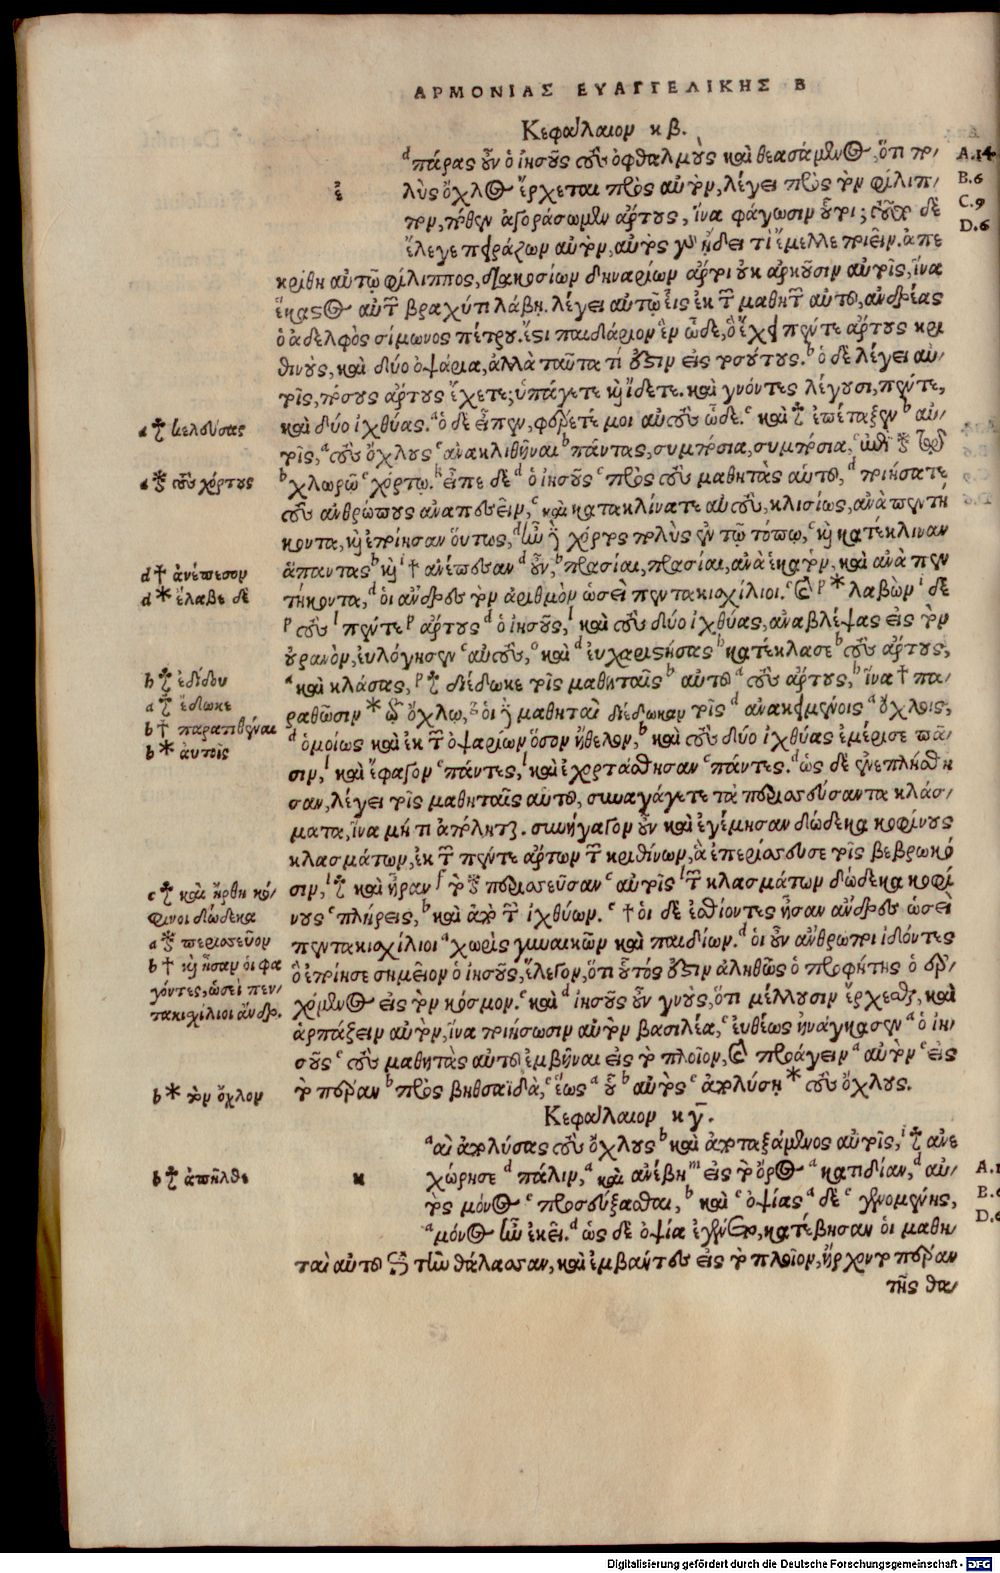 ΑΡΜΟΝΙΑΣ ΕΥΑΓΓΕΛΙΚΗΣ Β
Κεφάλαιον κβ.
ἐ
ᵈπάρας οὖν ὁ ἰησοῦς τοὺς ὀφθαλμοὺς καὶ θεασάμενος, ὅτι πο/
λὺς ὄχλος ἔρχεται πρὸς αὐτὸν, λέγει πρὸς τὸν φίλιπ/
πον, πόθεν ἀγοράσωμεν ἄρτους, ἵνα φάγωσιν οὗτοι; τοῦτο δὲ
ἔλεγε πειράζων αὐτὸν, αὐτὸς γὰρ ᾔδει τί ἔμελλε ποιεῖν. ἀπε
κρίθη αὐτῷ φίλιππος, διακοσίων δηναρίων ἄρτοι οὐκ ἀρκοῦσιν αὐτοῖς, ἵνα
ἕκαστος αὐτῶν βραχύ τι λάβῃ. λέγει αὐτῷ εἷς ἐκ τῶν μαθητῶν αὐτοῦ, ἀνδρέας
ὁ ἀδελφὸς σίμωνος πέτρου. ἔστι παιδάριον ἓν ὧδε, ὃ ἔχει πέντε ἄρτους κρι
θίνους, καὶ δύο ὀψάρια, ἀλλὰ ταῦτα τί ἐστιν εἰς τοσούτους. ᵇ ὁ δὲ λέγει αὐ/
τοῖς, πόσους ἄρτους ἔχετε; ὑπάγετε καὶ ἴδετε. καὶ γνόντες λέγουσι, πέντε,
καὶ δύο ἰχθύας. ᵃ ὁ δὲ εἶπεν, φέρετέ μοι αὐτοὺς ὧδε. ᶜ καὶ ⁒ ἐπέταξεν ᵇ αὐ/
τοῖς, ᵃ τοὺς ὄχλους ᶜ ἀνακλιθῆναι ᵇ πάντας, συμπόσια, συμπόσια, ᶜ ἐπὶ ⁒ τῷ
ᵇ χλωρῷ ᶜ χόρτῳ. ᵏ εἶπε δὲ ᵈ ὁ ἰησοῦς ᶜ πρὸς τοὺς μαθητὰς αὐτοῦ, ᵈ ποιήσατε
τοὺς ἀνθρώπους ἀναπεσεῖν, ᶜ καὶ κατακλίνατε αὐτοὺς, κλισίας, ἀνὰ πεντή
κοντα, καὶ ἐποίησαν οὕτως, ᵈ ἦν δὲ χόρτος πολὺς ἐν τῷ τόπῳ, ᶜ καὶ κατέκλιναν
ἅπαντας ᵇ καὶ ⁱ † ἀνέπεσαν ᵈ οὖν, ᵇ πρασιαὶ, πρασιαὶ, ἀνὰ ἑκατὸν, καὶ ἀνὰ πεν
τήκοντα, ᵈ οἱ ἄνδρες τὸν ἀριθμὸν ὡσεὶ πεντακισχίλιοι. ᶜ καὶ ᵖ * λαβὼν ⁱ δὲ
ᵖ τοὺς ˡ πέντε ᵖ ἄρτους ᵈ ὁ ἰησοῦς, ˡ καὶ τοὺς δύο ἰχθύας, ἀναβλέψας εἰς τὸν
οὐρανὸν, εὐλόγησεν ᶜ αὐτοὺς, ᵒ καὶ ᵈ εὐχαριστήσας ᵇ κατέκλασε ᵇ τοὺς ἄρτους,
ᵃ καὶ κλάσας, ᵖ ⁒ δέδωκε τοῖς μαθηταῖς ᵇ αὐτοῦ ᵃ τοὺς ἄρτους, ᵇ ἵνα † πα/
ραθῶσιν * τῷ ὄχλῳ, ᵍ οἱ δὲ μαθηταὶ δέδωκαν τοῖς ᵈ ἀνακειμένοις ᵃ ὄχλοις,
ᵈ ὁμοίως καὶ ἐκ τῶν ὀψαρίων ὅσον ἤθελον, ᵇ καὶ τοὺς δύο ἰχθύας ἐμέρισε πᾶ/
σιν, ˡ καὶ ἔφαγον ᶜ πάντες, ˡ καὶ ἐχορτάσθησαν ᶜ πάντες. ᵈ ὡς δὲ ἐνεπλήσθη
σαν, λέγει τοῖς μαθηταῖς αὐτοῦ, συναγάγετε τὰ περισσεύσαντα κλάσ/
ματα, ἵνα μή τι ἀπόληται. συνήγαγον οὖν καὶ ἐγέμισαν δώδεκα κοφίνους
κλασμάτων, ἐκ τῶν πέντε ἄρτων τῶν κριθίνων, ἃ ἐπερίσσευσε τοῖς βεβρωκό
σιν, ˡ ⁒ καὶ ἦραν ᶠ τὸ ⁒ περισσεῦσαν ᶜ αὐτοῖς ˡ τῶν κλασμάτων δώδεκα κοφί
νους ᶜ πλήρεις, ᵇ καὶ ἀπὸ τῶν ἰχθύων. ᶜ † οἱ δὲ ἐσθίοντες ἦσαν ἄνδρες ὡσεὶ
πεντακισχίλιοι ᵃ χωρὶς γυναικῶν καὶ παιδίων. ᵈ οἱ οὖν ἄνθρωποι ἰδόντες
ὃ ἐποίησε σημεῖον ὁ ἰησοῦς, ἔλεγον, ὅτι οὗτός ἐστιν ἀληθῶς ὁ προφήτης ὁ ἐρ/
χόμενος εἰς τὸν κόσμον. ᶜ καὶ ᵈ ἰησοῦς οὖν γνοὺς, ὅτι μέλλουσιν ἔρχεσθαι, καὶ
ἁρπάζειν αὐτὸν, ἵνα ποιήσωσιν αὐτὸν βασιλέα, ᶜ εὐθέως ἠνάγκασεν ᵃ ὁ ἰη/
σοῦς ᶜ τοὺς μαθητὰς αὐτοῦ ἐμβῆναι εἰς τὸ πλοῖον, καὶ προάγειν ᵃ αὐτὸν ᶜ εἰς
τὸ πέραν ᵇ πρὸς βηθσαϊδὰ, ᶜ ἕως ᵃ οὗ ᵇ αὐτὸς ᶜ ἀπολύσῃ * τοὺς ὄχλους.
Κεφάλαιον κγ.
κ
ᵃαὶ ἀπολύσας τοὺς ὄχλους ᵇ καὶ ἀποταξάμενος αὐτοῖς, ⁱ ⁒ ἀνε
χώρησε ᵈ πάλιν, ᵃ καὶ ἀνέβη ᵐ εἰς τὸ ὄρος ᵃ κατιδίαν, ᵈ αὐ/
τὸς μόνος ᶜ προσεύξασθαι, ᵇ καὶ ᶜ ὀψίας ᵃ δὲ ᶜ γενομένης,
ᵃ μόνος ἦν ἐκεῖ. ᵈ ὡς δὲ ὀψία ἐγένετο, κατέβησαν οἱ μαθη
ταὶ αὐτοῦ ἐπὶ τὴν θάλασσαν, καὶ ἐμβάντες εἰς τὸ πλοῖον, ἤρχοντο πέραν
τῆς θα/
A.14
B.6
C.9
D.6
a ⁒ κελεύσας
a ⁒ τοὺς χόρτους
d † ἀνέπεσον
d * ἔλαβε δὲ
b ⁒ ἐδίδου
a ⁒ ἔδωκε
b † παρατιθέναι
b * αὐτοῖς
c ⁒ καὶ ἤρθη κό/
φινοι δώδεκα
a ⁒ περισσεῦον
b † καὶ ἦσαν οἱ φα
γόντες, ὡσεὶ πεν/
τακισχίλιοι ἄνδρ.
b * τὸν ὄχλον
b ⁒ ἀπῆλθε
A.1
B.6
D.6
Digitalisierung gefördert durch die Deutsche Forschungsgemeinschaft - DFG